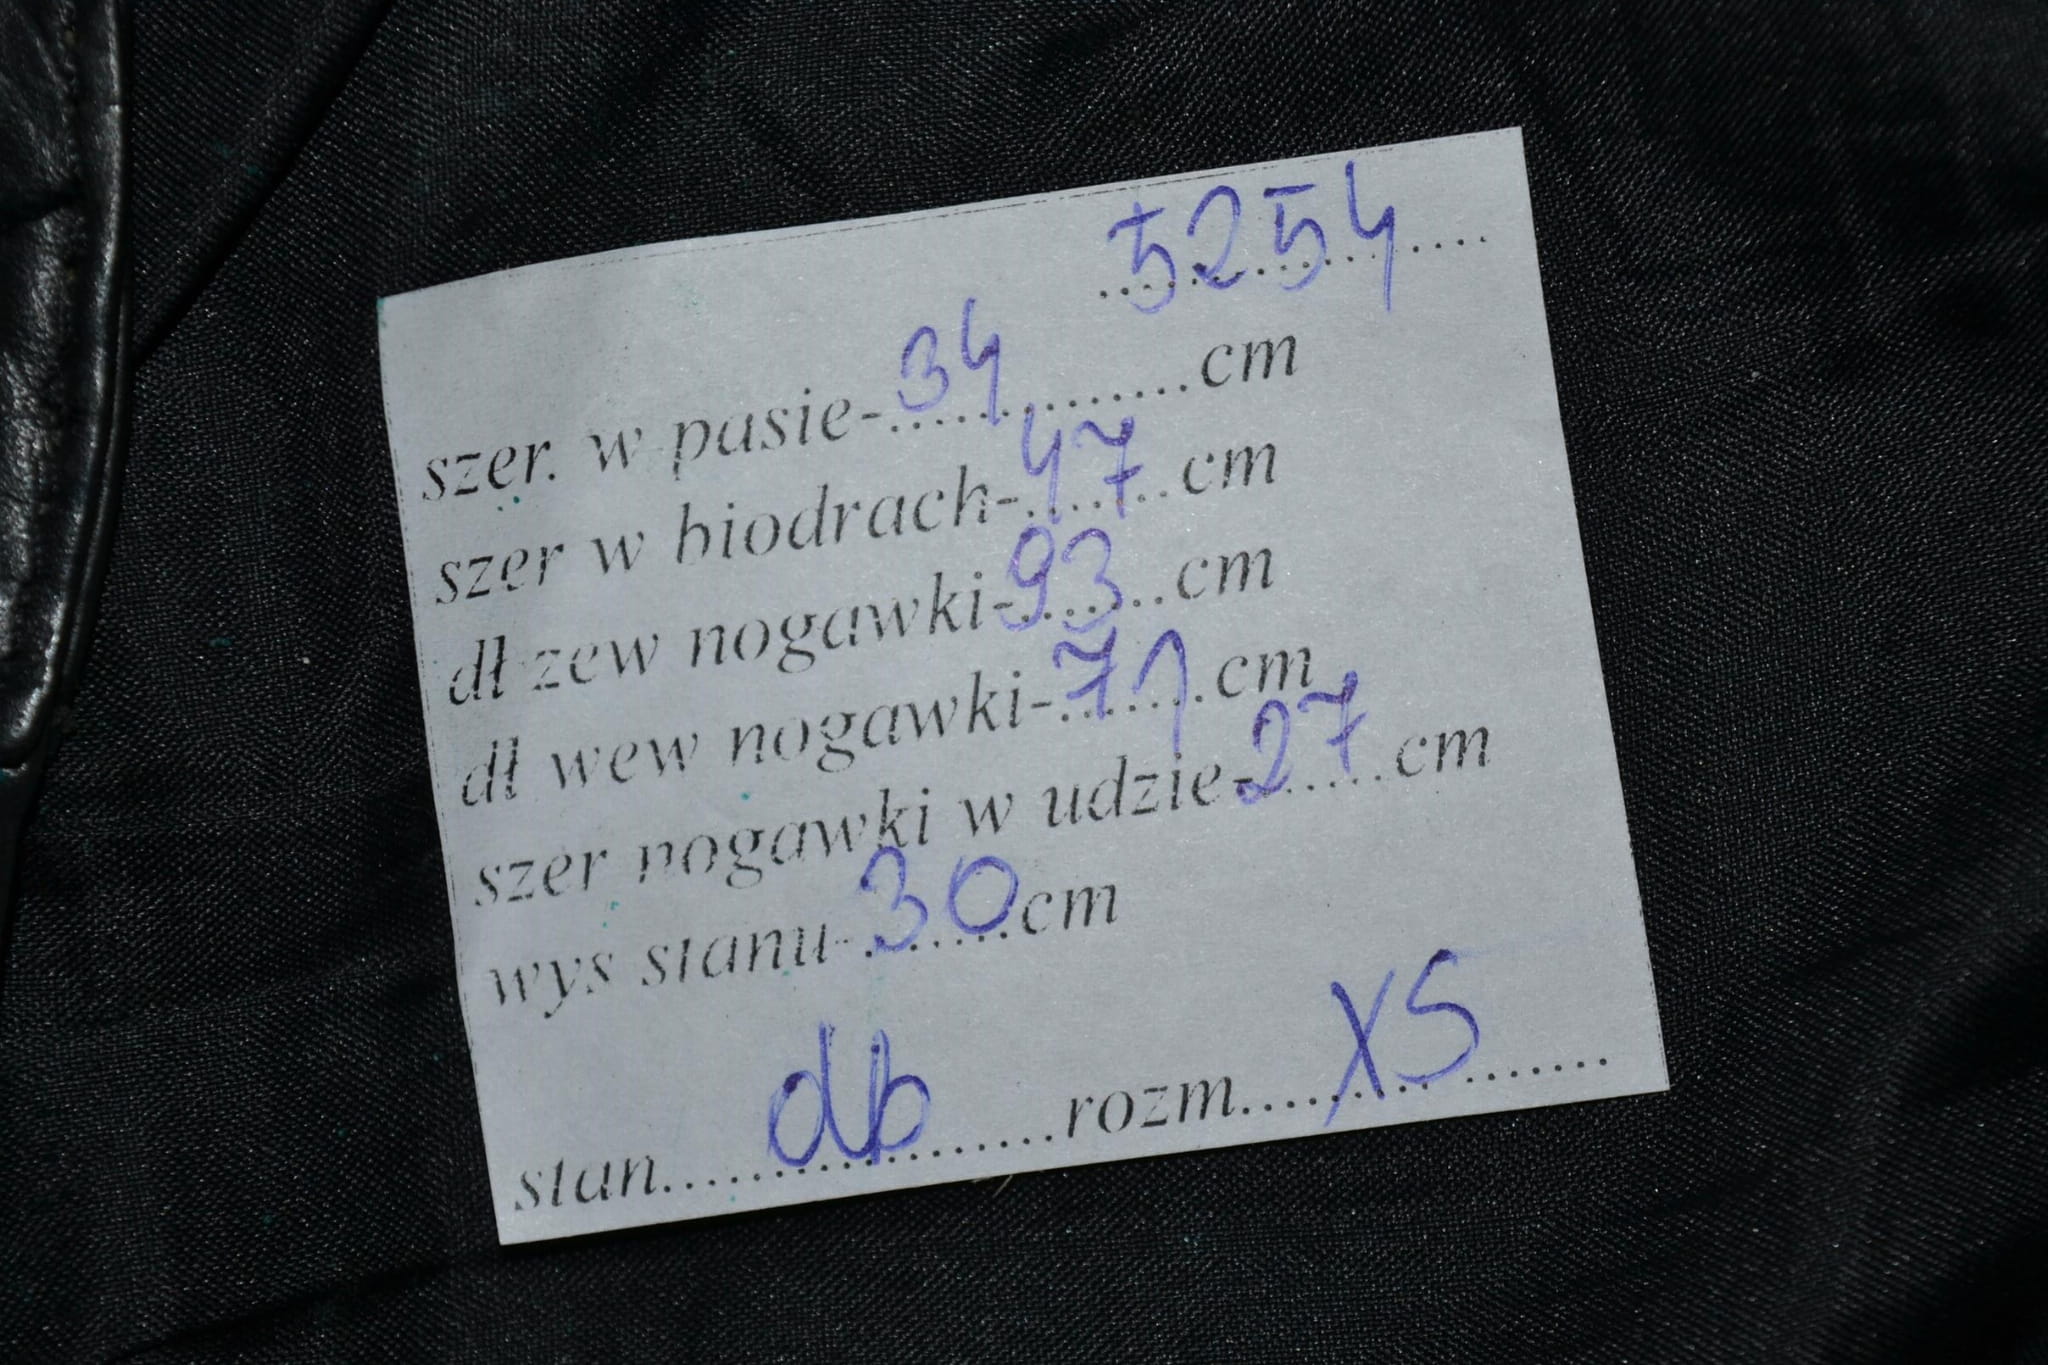 5254
szer. w pasie-34cm
szer w biodrach-47cm
dł zew nogawki-93cm
dł wew nogawki-71cm
szer nogawki w udzie-27cm
wys stanu-30cm
stan....db....rozm....XS....